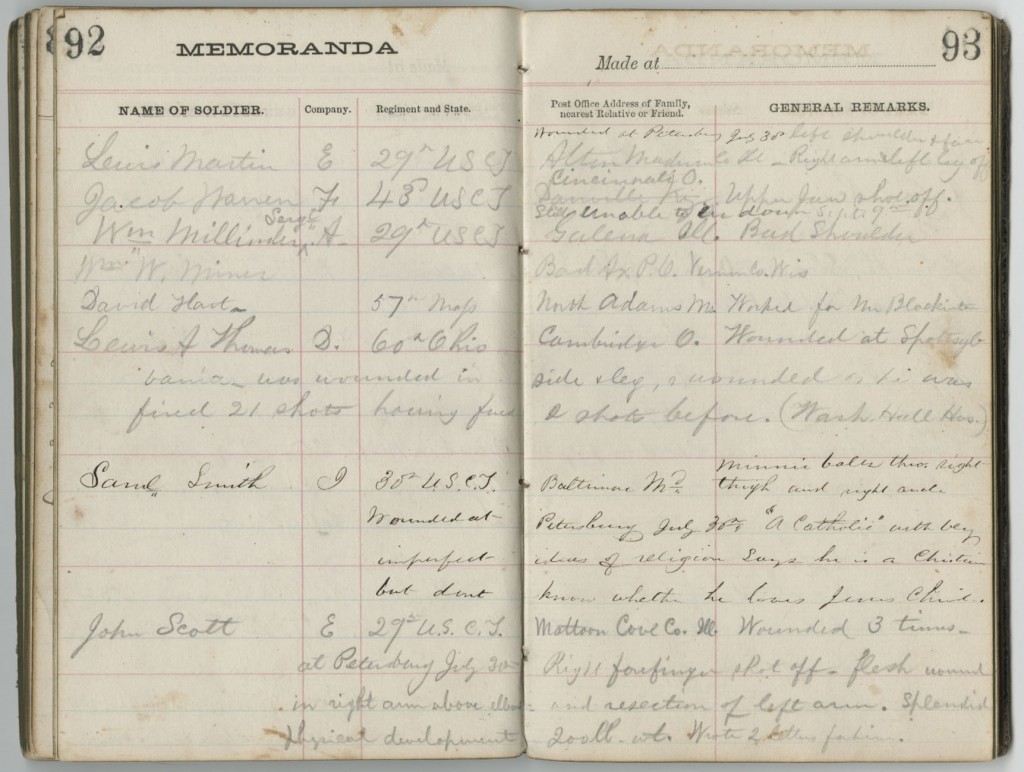 92 MEMORANDA
Made at 93
NAME OF SOLDIER. Company. Regiment and State. Post Office Address of Family, nearest Relative or Friend. GENERAL REMARKS.
Wounded at Petersburg July 30th left shoulder &
Lewis Martin E 29th U S C T Alton Madison Co Ill - Right arm & left leg off
Cincinnati O.
Jacob Warren F 43d U S C T Danville Upper Jaw shot off.
Still unable to lie down Sept. 9th
Sergt
Wm Millinder, A 29th U S C T Galena Ill. Bad Shoulder
W. Miner Bad Ax P.O. Vernon Co. Wis
David Hart 57th Mass North Adams Ms. Worked for Mr Blackinton
Lewis A Thomas D. 60th Ohio Cambridge O. Wounded at Spottsyl-
vania - was wounded in side & leg, & wounded as he was
fired 21 shots having fired 2 shots before. (Wash. Hall Hos.)
Minnie balls thro. right
Saml Smith I 30th U.S.C.T. Baltimore Md thigh and right
Wounded at Petersburg July 30th "A Catholic" with very
imperfect ideas of religion Says he is a Christian
but dont know whether he loves Jesus Christ.
John Scott E 29th U.S. C.T. Mattoon Cole Co. Ill. Wounded 3 times -
at Petersburg July 30th Right forefinger shot off - flesh wound
in right arm above elbow - and resection of left arm. Splendid
physical development 200 lb. wt. Wrote 2 letters for him.